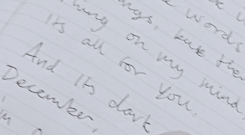 words
things, but the
thing on my mind
Its all for you.
And Its dark
December,
I'm